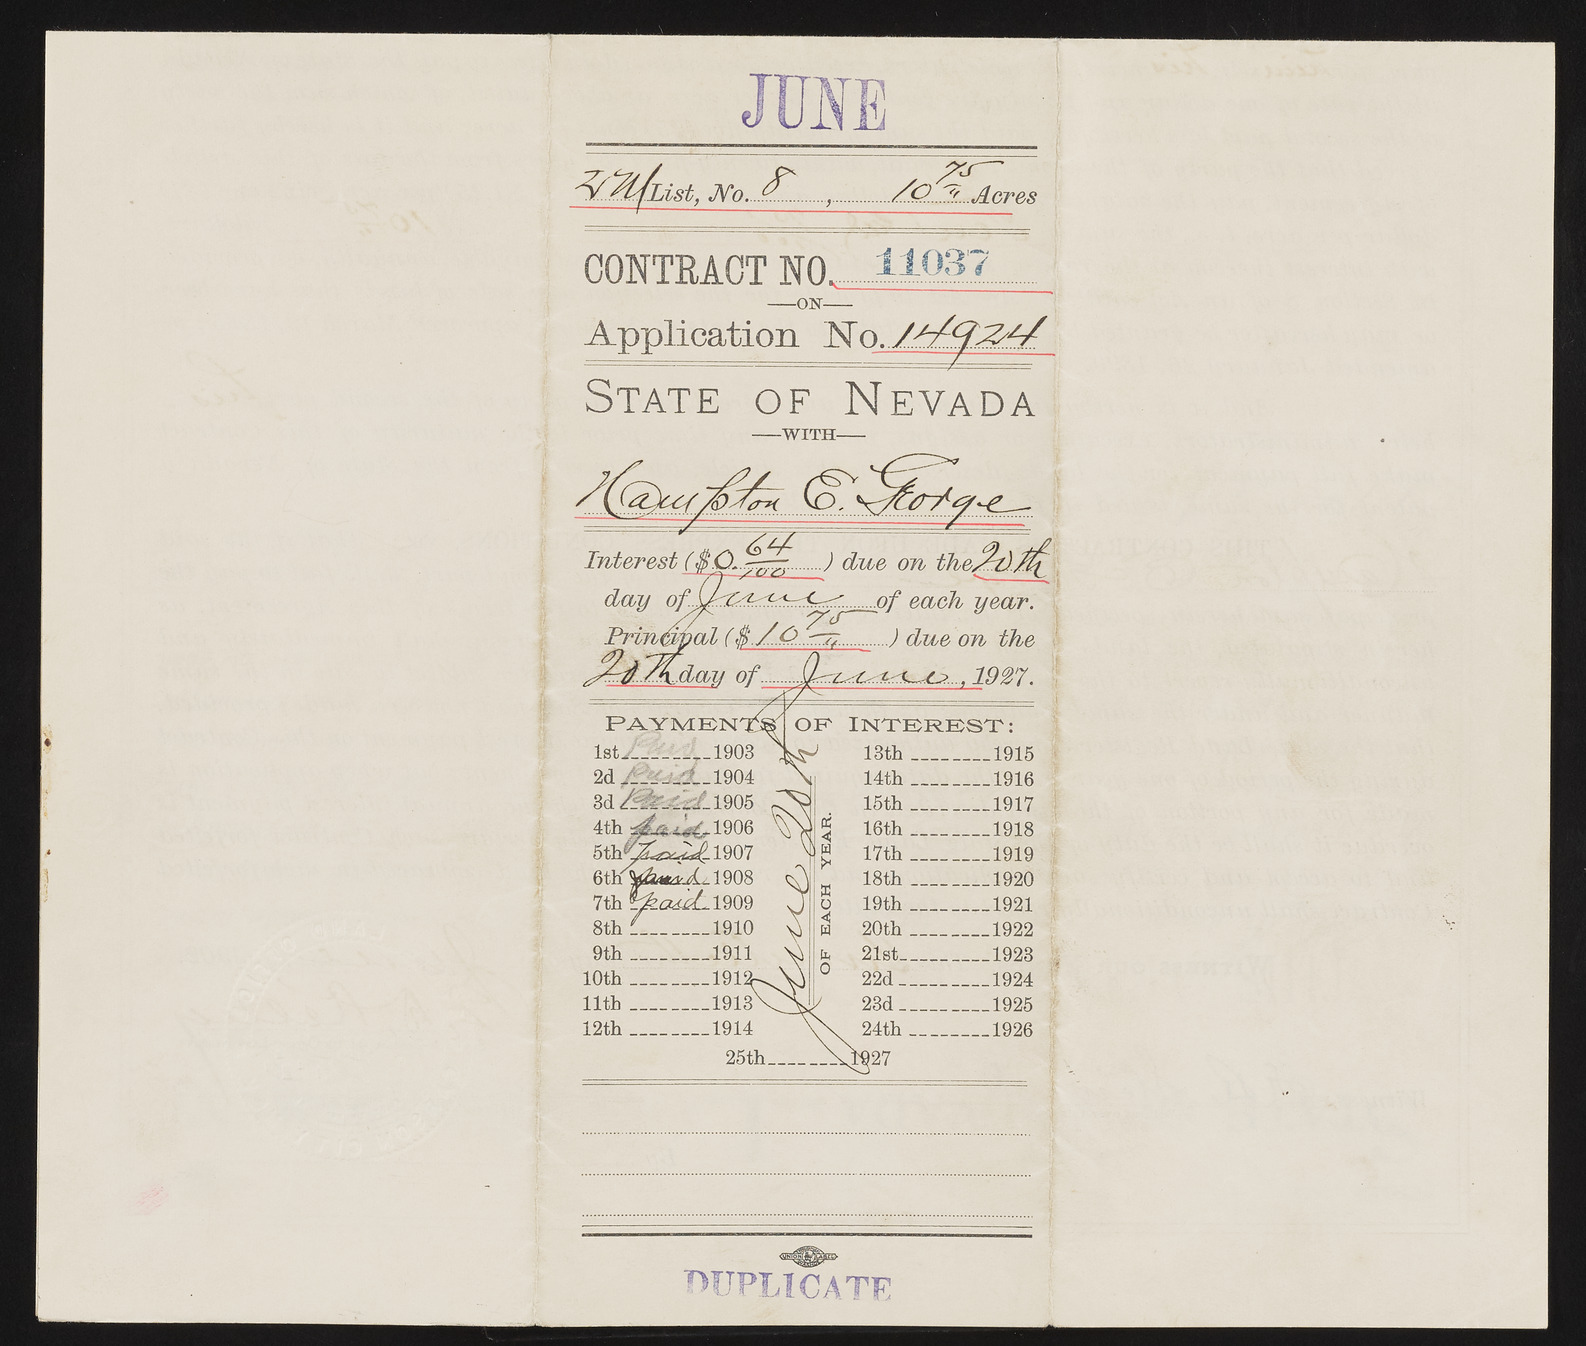 JUNE
List, No. 8, 10 75/" Acres
CONTRACT NO. 11037
—ON—
Application No. 14924
STATE OF NEVADA
—WITH—
Hampton E. George
Interest ($0. 64/100) due on the 20th
day of June of each year.
Principal ($10 75/") due on the
20th day of June, 1927.
PAYMENTS OF INTEREST:
1st Paid 1903
2d Paid 1904
3d Paid 1905
4th paid 1906
5th paid 1907
6th paid 1908
7th paid 1909
8th 1910
9th 1911
10th 1912
11th 1913
12th 1914
June 20th
OF EACH YEAR.
13th 1915
14th 1916
15th 1917
16th 1918
17th 1919
18th 1920
19th 1921
20th 1922
21st 1923
22d 1924
23d 1925
24th 1926
25th 1927
UNION LABEL
DUPLICATE